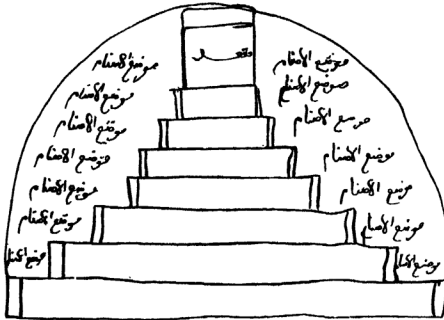 موضع الأصنام
موضع الأصنام
مقعد
موضع الأصنام
موضع الأصنام
موضع الأصنام
موضع الأصنام
موضع الأصنام
موضع الأصنام
موضع الأصنام
موضع الأصنام
موضع الأصنام
موضع الأصنام
موضع الأصنام
موضع الأصنام